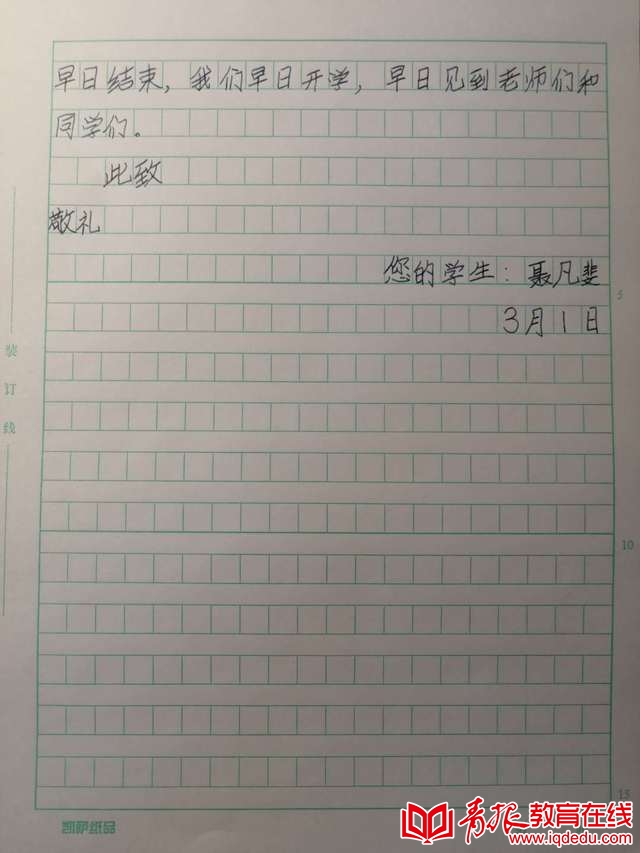 早日结束，我们早日开学，早日见到老师们和
同学们。
此致
敬礼
您的学生：聂凡斐
3月1日
5
装订线
10
15
凯萨纸品
青报教育在线
www.iqdedu.com